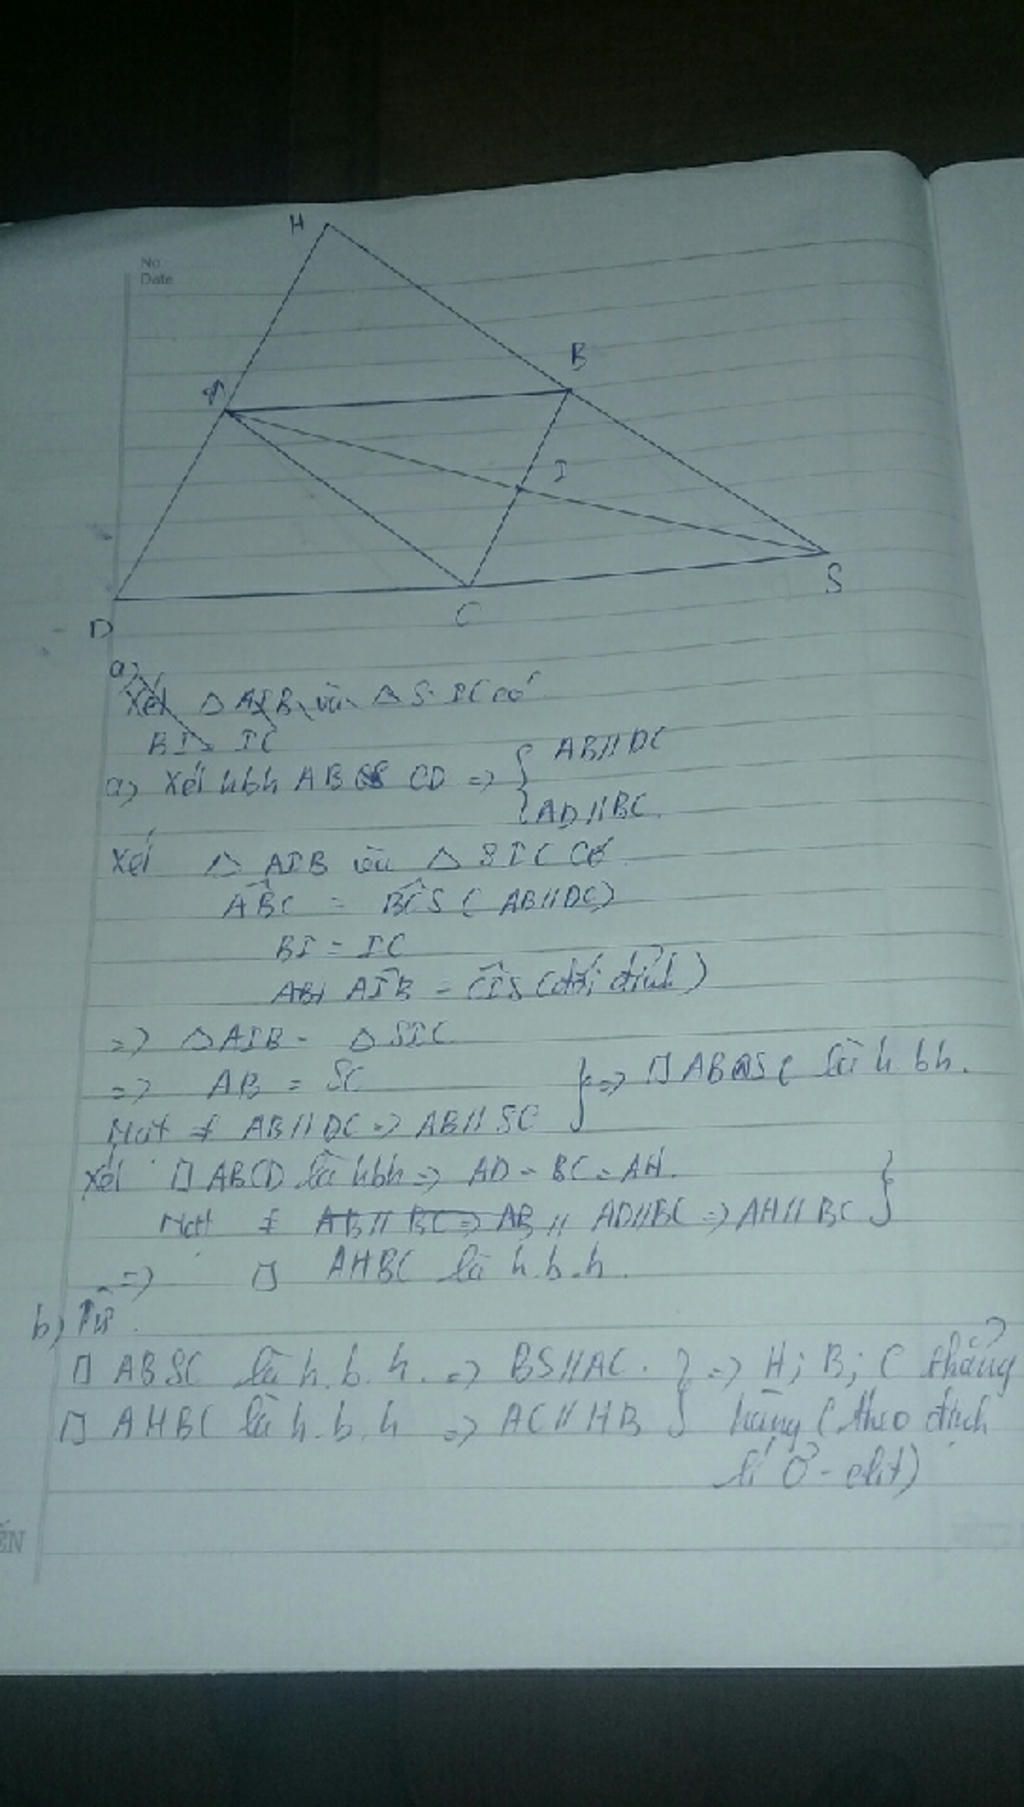 No
Date
H
A
B
I
D
C
S
a)
Xét △ AIB và △ SIC có
BI = IC
a) Xét hbh AB CD => { AB//DC
AD//BC.
Xét △ AIB và △ SIC có
ABC = BCS (AB//DC)
BI = IC
ABI AIB = CIS (đối đỉnh)
=> △AIB = △SIC
=> AB = SC } => □ ABSC là h.bh.
Mặt ≠ AB // DC => AB // SC
Xét □ ABCD là hbh => AD = BC = AH.
Mặt ≠ AB // BC => AB // AD//BC => AH // BC }
=> □ AHBC là h.b.h.
b) Từ
□ ABSC là h.b.h. => BS//AC. } => H; B; C thẳng
□ AHBC là h.b.h => AC // HB hàng (theo định
lí Ơ-clit)
ẾN